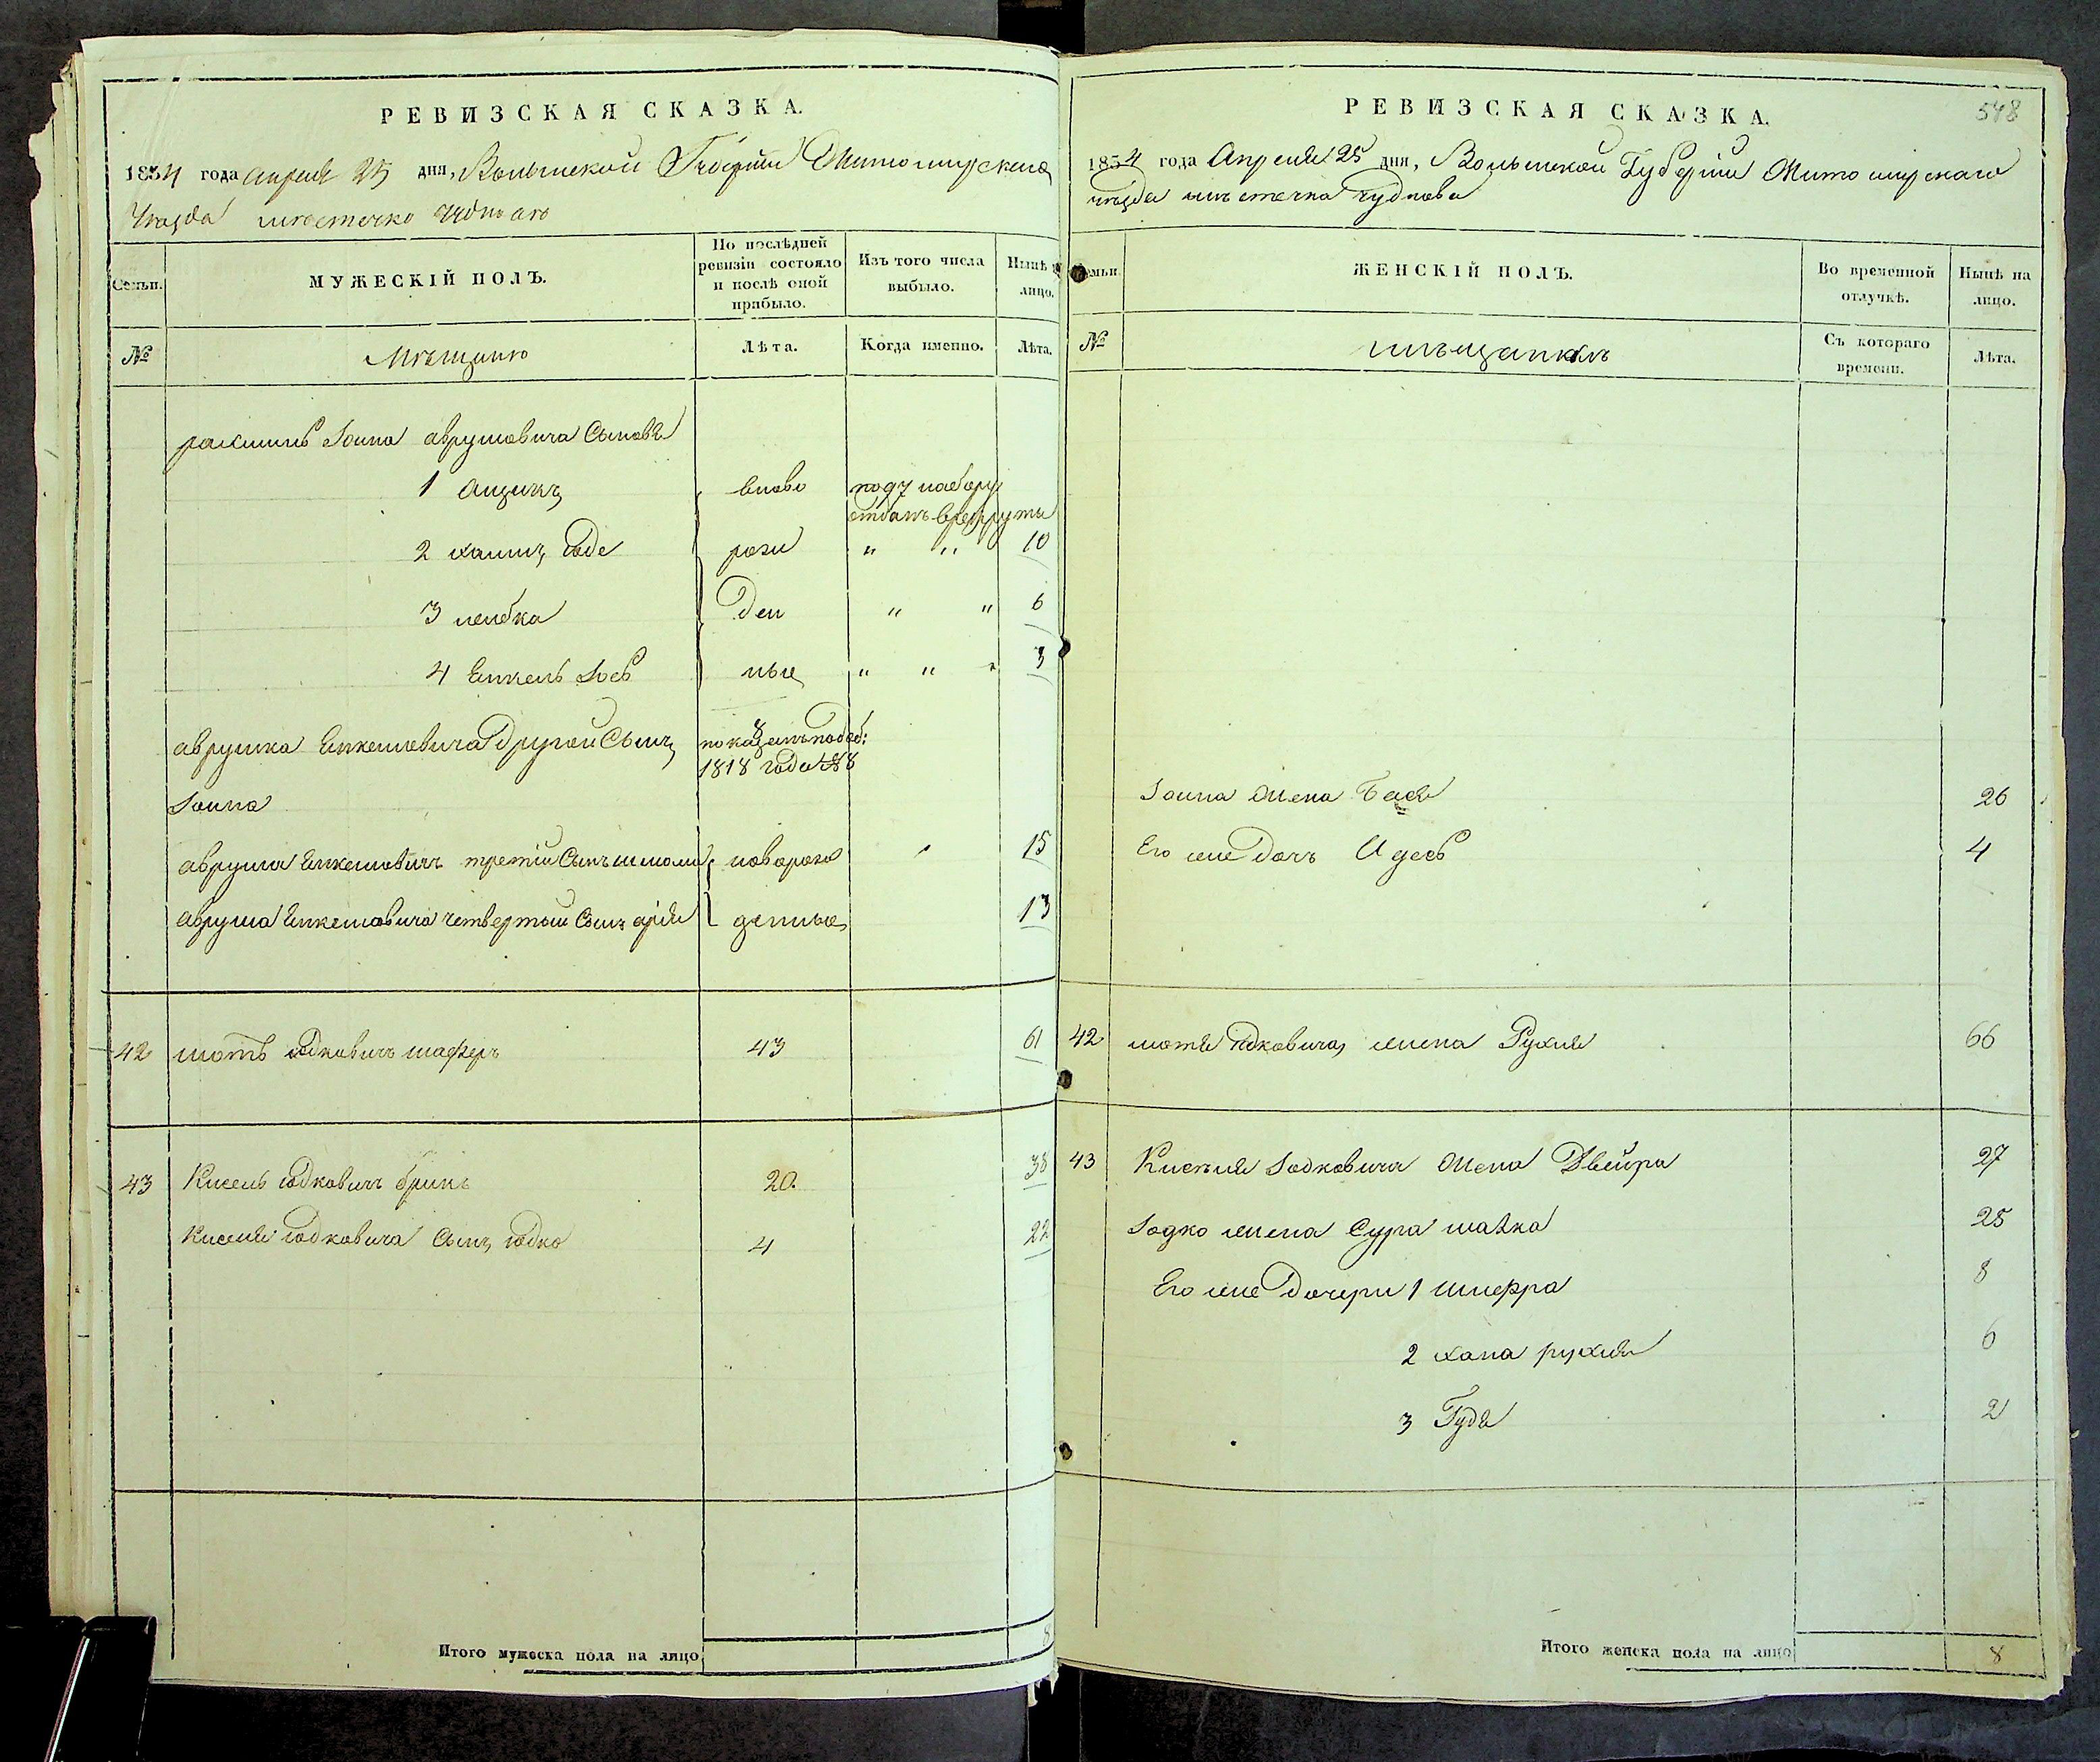 РЕВИЗСКАЯ СКАЗКА.
1854 года апреля 25 дня, Волынской Губернии Житомирскаго
Уезда местечко Чуднаго
Семьи.
МУЖЕСКІЙ ПОЛЪ.
По послѣдней ревизіи состояло и послѣ оной прибыло.
Изъ того числа выбыло.
Нынѣ на лицо.
№
Мѣщане
Лѣта.
Когда именно.
Лѣта.
Іоина аврумовича Сыновя
1 Аицикъ вново
отданъ в рекруты
2 хаимъ юде рож " " 10
3 лейбка ден " " 6
4 Енкель Іось ные " " " 3
аврумка Енкелевича Другой Сынъ показанъ подоб:
1818 года № 8
Іоина
аврума Енкелевичъ третій Сынъ шмоль новорож 15
аврума Енкелевича четвертый Сынъ арія денные 13
42 мотъ юдковичъ шафер 43 61
43 Кисель юдковичъ бринъ 20 38
Киселя юдковича Сынъ юдко 4 22
Итого мужеска пола на лицо 8
РЕВИЗСКАЯ СКАЗКА. 548
1854 года Апреля 25 дня, Волынской Губерніи Житомирскаго
уезда местечка чуднова
Семьи
ЖЕНСКІЙ ПОЛЪ.
Во временной отлучкѣ.
Нынѣ на лицо.
№
мѣщанкѣ
Съ котораго времени.
Лѣта.
Іоина Жена Бася 26
Его же Дочъ Идесъ 4
42 мотя юдковича жена Рухля 66
43 Киселя Іодковича Жена Двейра 27
Іодко жена Сура малка 25
Его же Дочери 1 шифра 8
2 хана рухля 6
3 Гудя 2
Итого женска пола на лицо 8